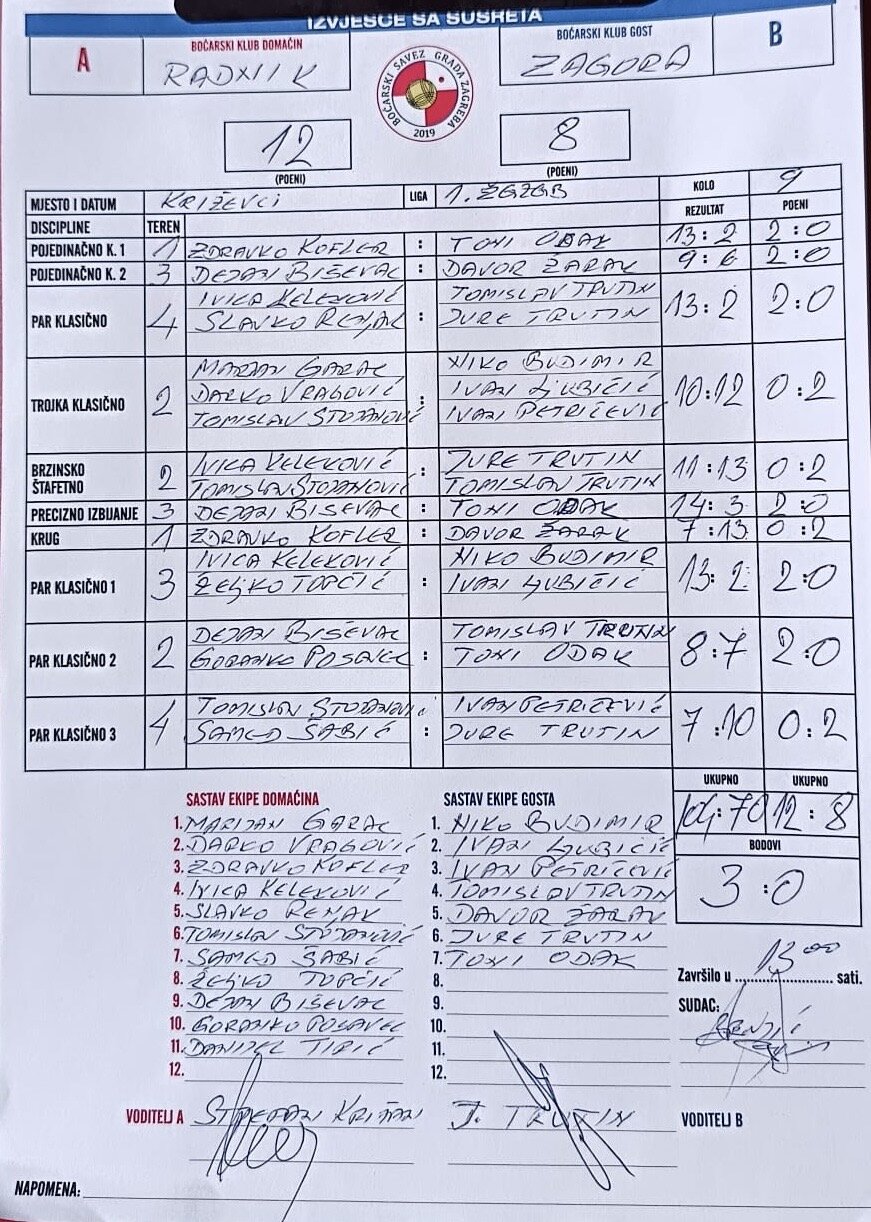 IZVJEŠĆE SA SUSRETA
A BOĆARSKI KLUB DOMAĆIN BOĆARSKI KLUB GOST B
RADNIK ZAGORA
BOĆARSKI SAVEZ GRADA ZAGREBA 2019
12 8
(POENI) (POENI)
MJESTO I DATUM KRIŽEVCI LIGA 1. ŽGZGB KOLO 9
DISCIPLINE TEREN REZULTAT POENI
POJEDINAČNO K. 1 1 ZDRAVKO KOFLER : TONI ODAK 13:2 2:0
POJEDINAČNO K. 2 3 DEJAN BIŠEVAC : DAVOR ŽARAK 9:6 2:0
IVICA KELEKOVIĆ TOMISLAV TRUTIN
PAR KLASIČNO 4 SLAVKO REMAK : JURE TRUTIN 13:2 2:0
MARIJAN GARAC NIKO BUDIMIR
TROJKA KLASIČNO 2 DARKO VRAGOVIĆ : IVAN LJUBIČIĆ 10:12 0:2
TOMISLAV STOJANOVIĆ IVAN PETRIČEVIĆ
BRZINSKO IVICA KELEKOVIĆ : JURE TRUTIN
ŠTAFETNO 2 TOMISLAV STOJANOVIĆ TOMISLAV TRUTIN 11:13 0:2
PRECIZNO IZBIJANJE 3 DEJAN BIŠEVAC : TONI ODAK 14:3 2:0
KRUG 1 ZDRAVKO KOFLER : DAVOR ŽARAK 7:13 0:2
IVICA KELEKOVIĆ NIKO BUDIMIR
PAR KLASIČNO 1 3 ŽELJKO TOPČIĆ : IVAN LJUBIČIĆ 13:2 2:0
DEJAN BIŠEVAC TOMISLAV TRUTIN
PAR KLASIČNO 2 2 GORANKO POSAVEC : TONI ODAK 8:7 2:0
TOMISLAV STOJANOVIĆ IVAN PETRIČEVIĆ
PAR KLASIČNO 3 4 SAMED ŠABIĆ : JURE TRUTIN 7:10 0:2
UKUPNO UKUPNO
SASTAV EKIPE DOMAĆINA SASTAV EKIPE GOSTA
:70 12:8
1. MARIJAN GARAC 1. NIKO BUDIMIR
2. DARKO VRAGOVIĆ 2. IVAN LJUBIČIĆ BODOVI
3. ZDRAVKO KOFLER 3. IVAN PETRIČEVIĆ
4. IVICA KELEKOVIĆ 4. TOMISLAV TRUTIN 3:0
5. SLAVKO REMAK 5. DAVOR ŽARAK
6. TOMISLAV STOJANOVIĆ 6. JURE TRUTIN
7. SAMED ŠABIĆ 7. TONI ODAK
8. ŽELJKO TOPČIĆ 8. Završilo u 13 00 sati.
9. DEJAN BIŠEVAC 9. SUDAC:
10. GORANKO POSAVEC 10.
11. DANIJEL 11.
12. 12.
VODITELJ A STJEPAN KRIŽAN J. TRUTIN VODITELJ B
NAPOMENA: